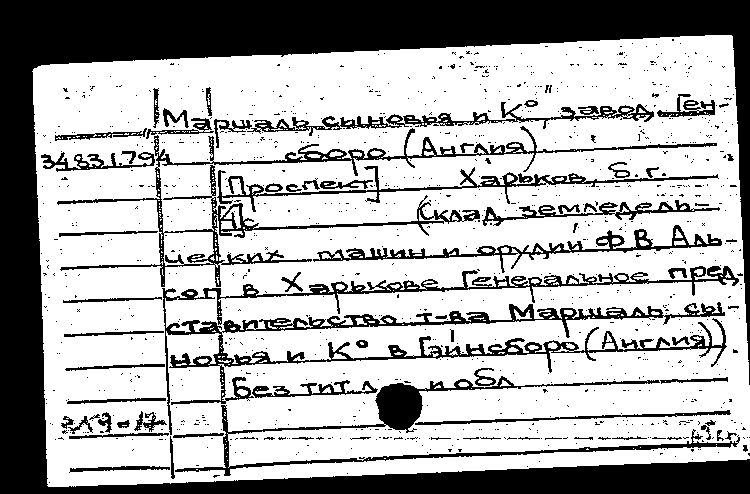 "Маршаль, сыновья и К°", завод, Ген-
34831.794 сборо (Англия)
[Проспект] Харьков, б.г.
[4]с (Склад земледель-
ческих машин и орудий Ф.В. Аль-
соп в Харькове. Генеральное пред-
ставительство т-ва Маршаль, сы-
новья и К° в Гэйнсборо (Англия))
Без тит. л. и обл.